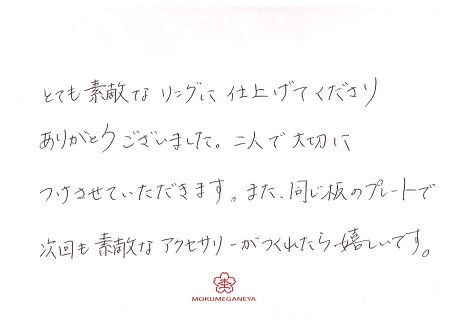 とても素敵なリングに仕上げてくださり
ありがとうございました。二人で大切に
つけさせていただきます。また、同じ板のプレートで
次回も素敵なアクセサリーがつくれたら嬉しいです。
MOKUMEGANEYA